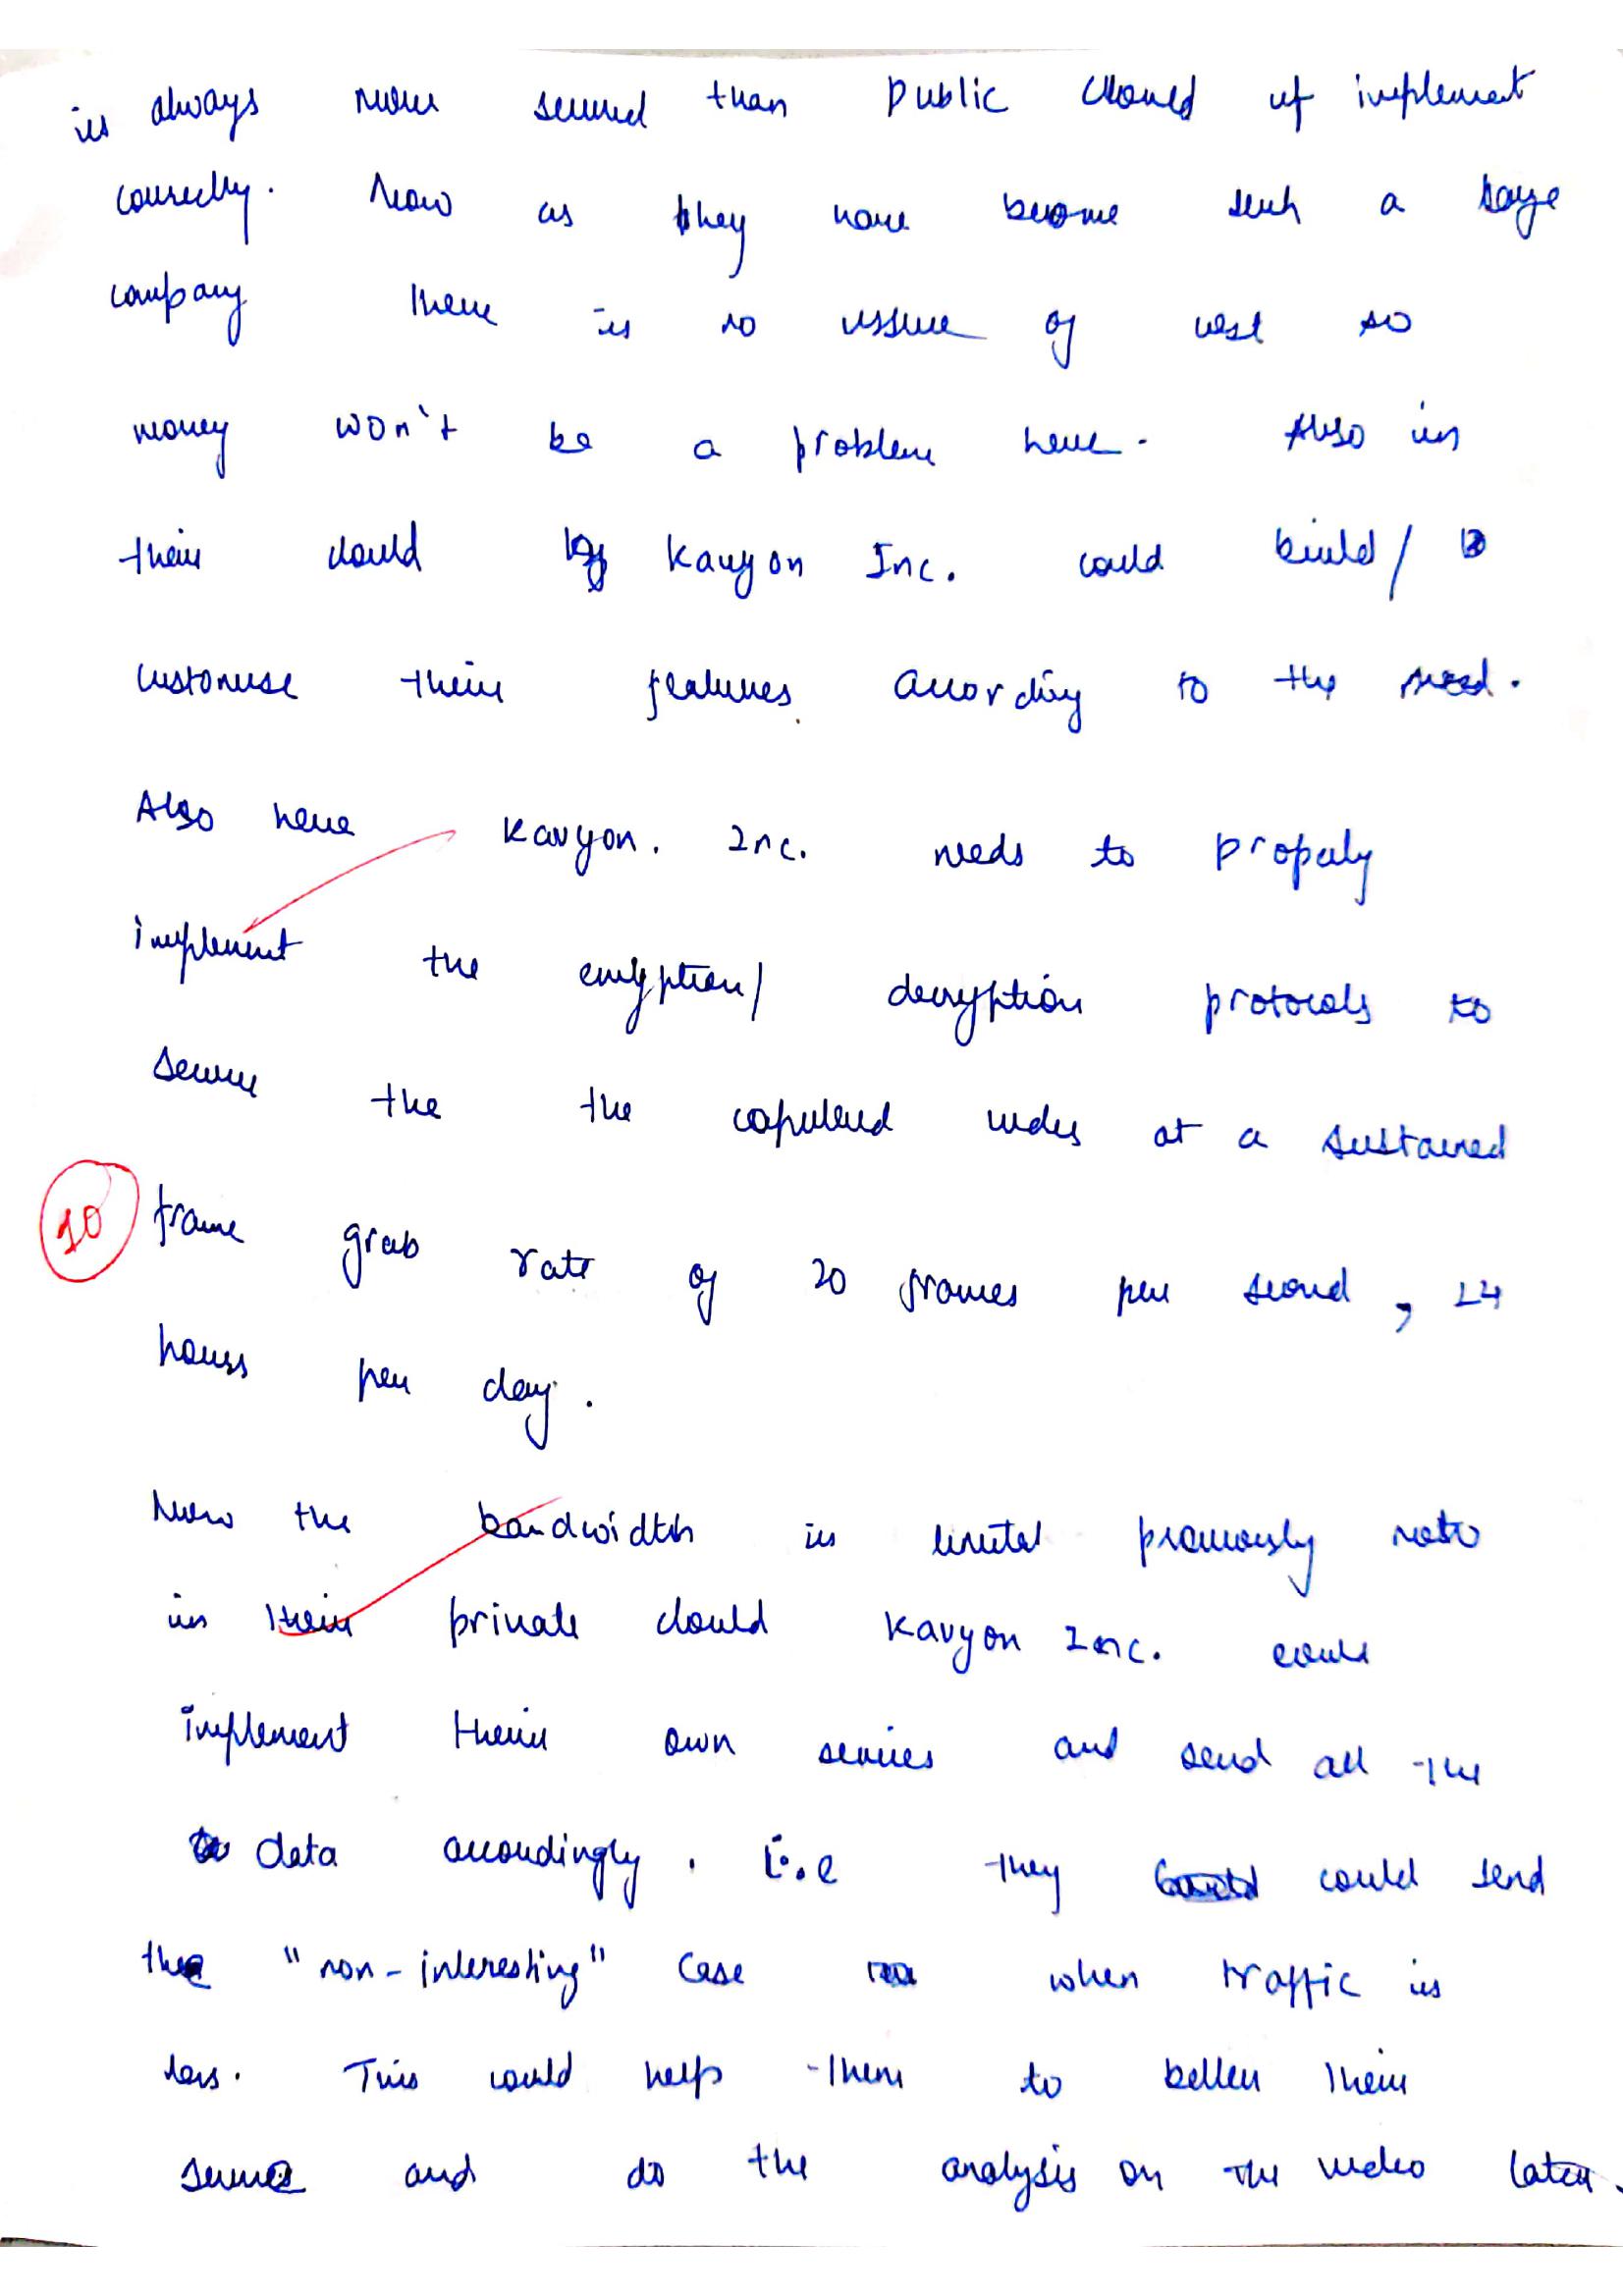 is always more secured than public cloud if implement
correctly. Now as they have become such a large
company there is no issue of cost so
money won't be a problem here. Also in
their cloud Kavyon Inc. could build/
customise their features according to the need.
Also here Kavyon. Inc. needs to properly
implement the encryption/ decryption protocols to
secure the the captured video at a sustained
10 frame grab rate of 20 frames per second, 24
hours per day.
Now the bandwidth is limited previously
in their private cloud Kavyon Inc. could
implement their own servies and send all the
data accordingly. i.e they could send
the "non-interesting" case when traffic is
less. This could help them to better their
service and do the analysis on the video later.